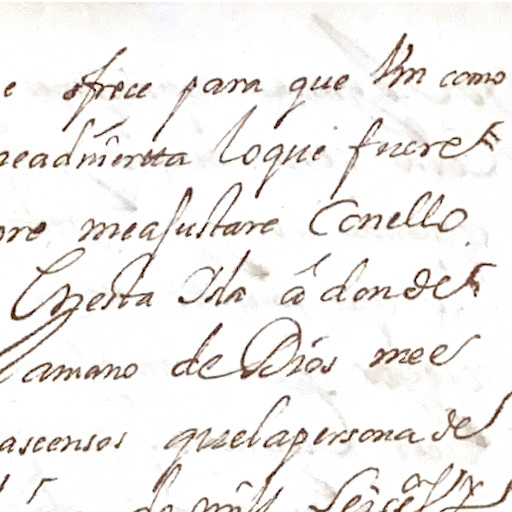 e ofrece para que Vm como
meadvierta loque fuere
pre meajustare Conello
Enesta Isla â donde
la mano de Dios mee
ascensos quelapersona de
de mill Seisc